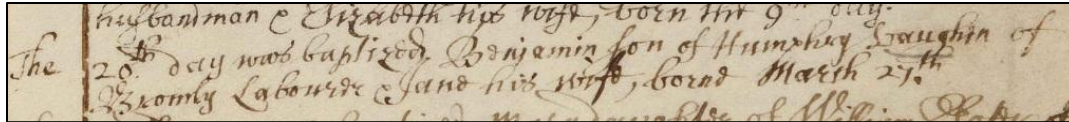 husbandman & Elizabeth his wife, born the 9th day.
The 20th day was baptized Benjamin son of Humphry Vaughan of
Bromly Labourer & Jane his wife, borne March 27th
daughter of William